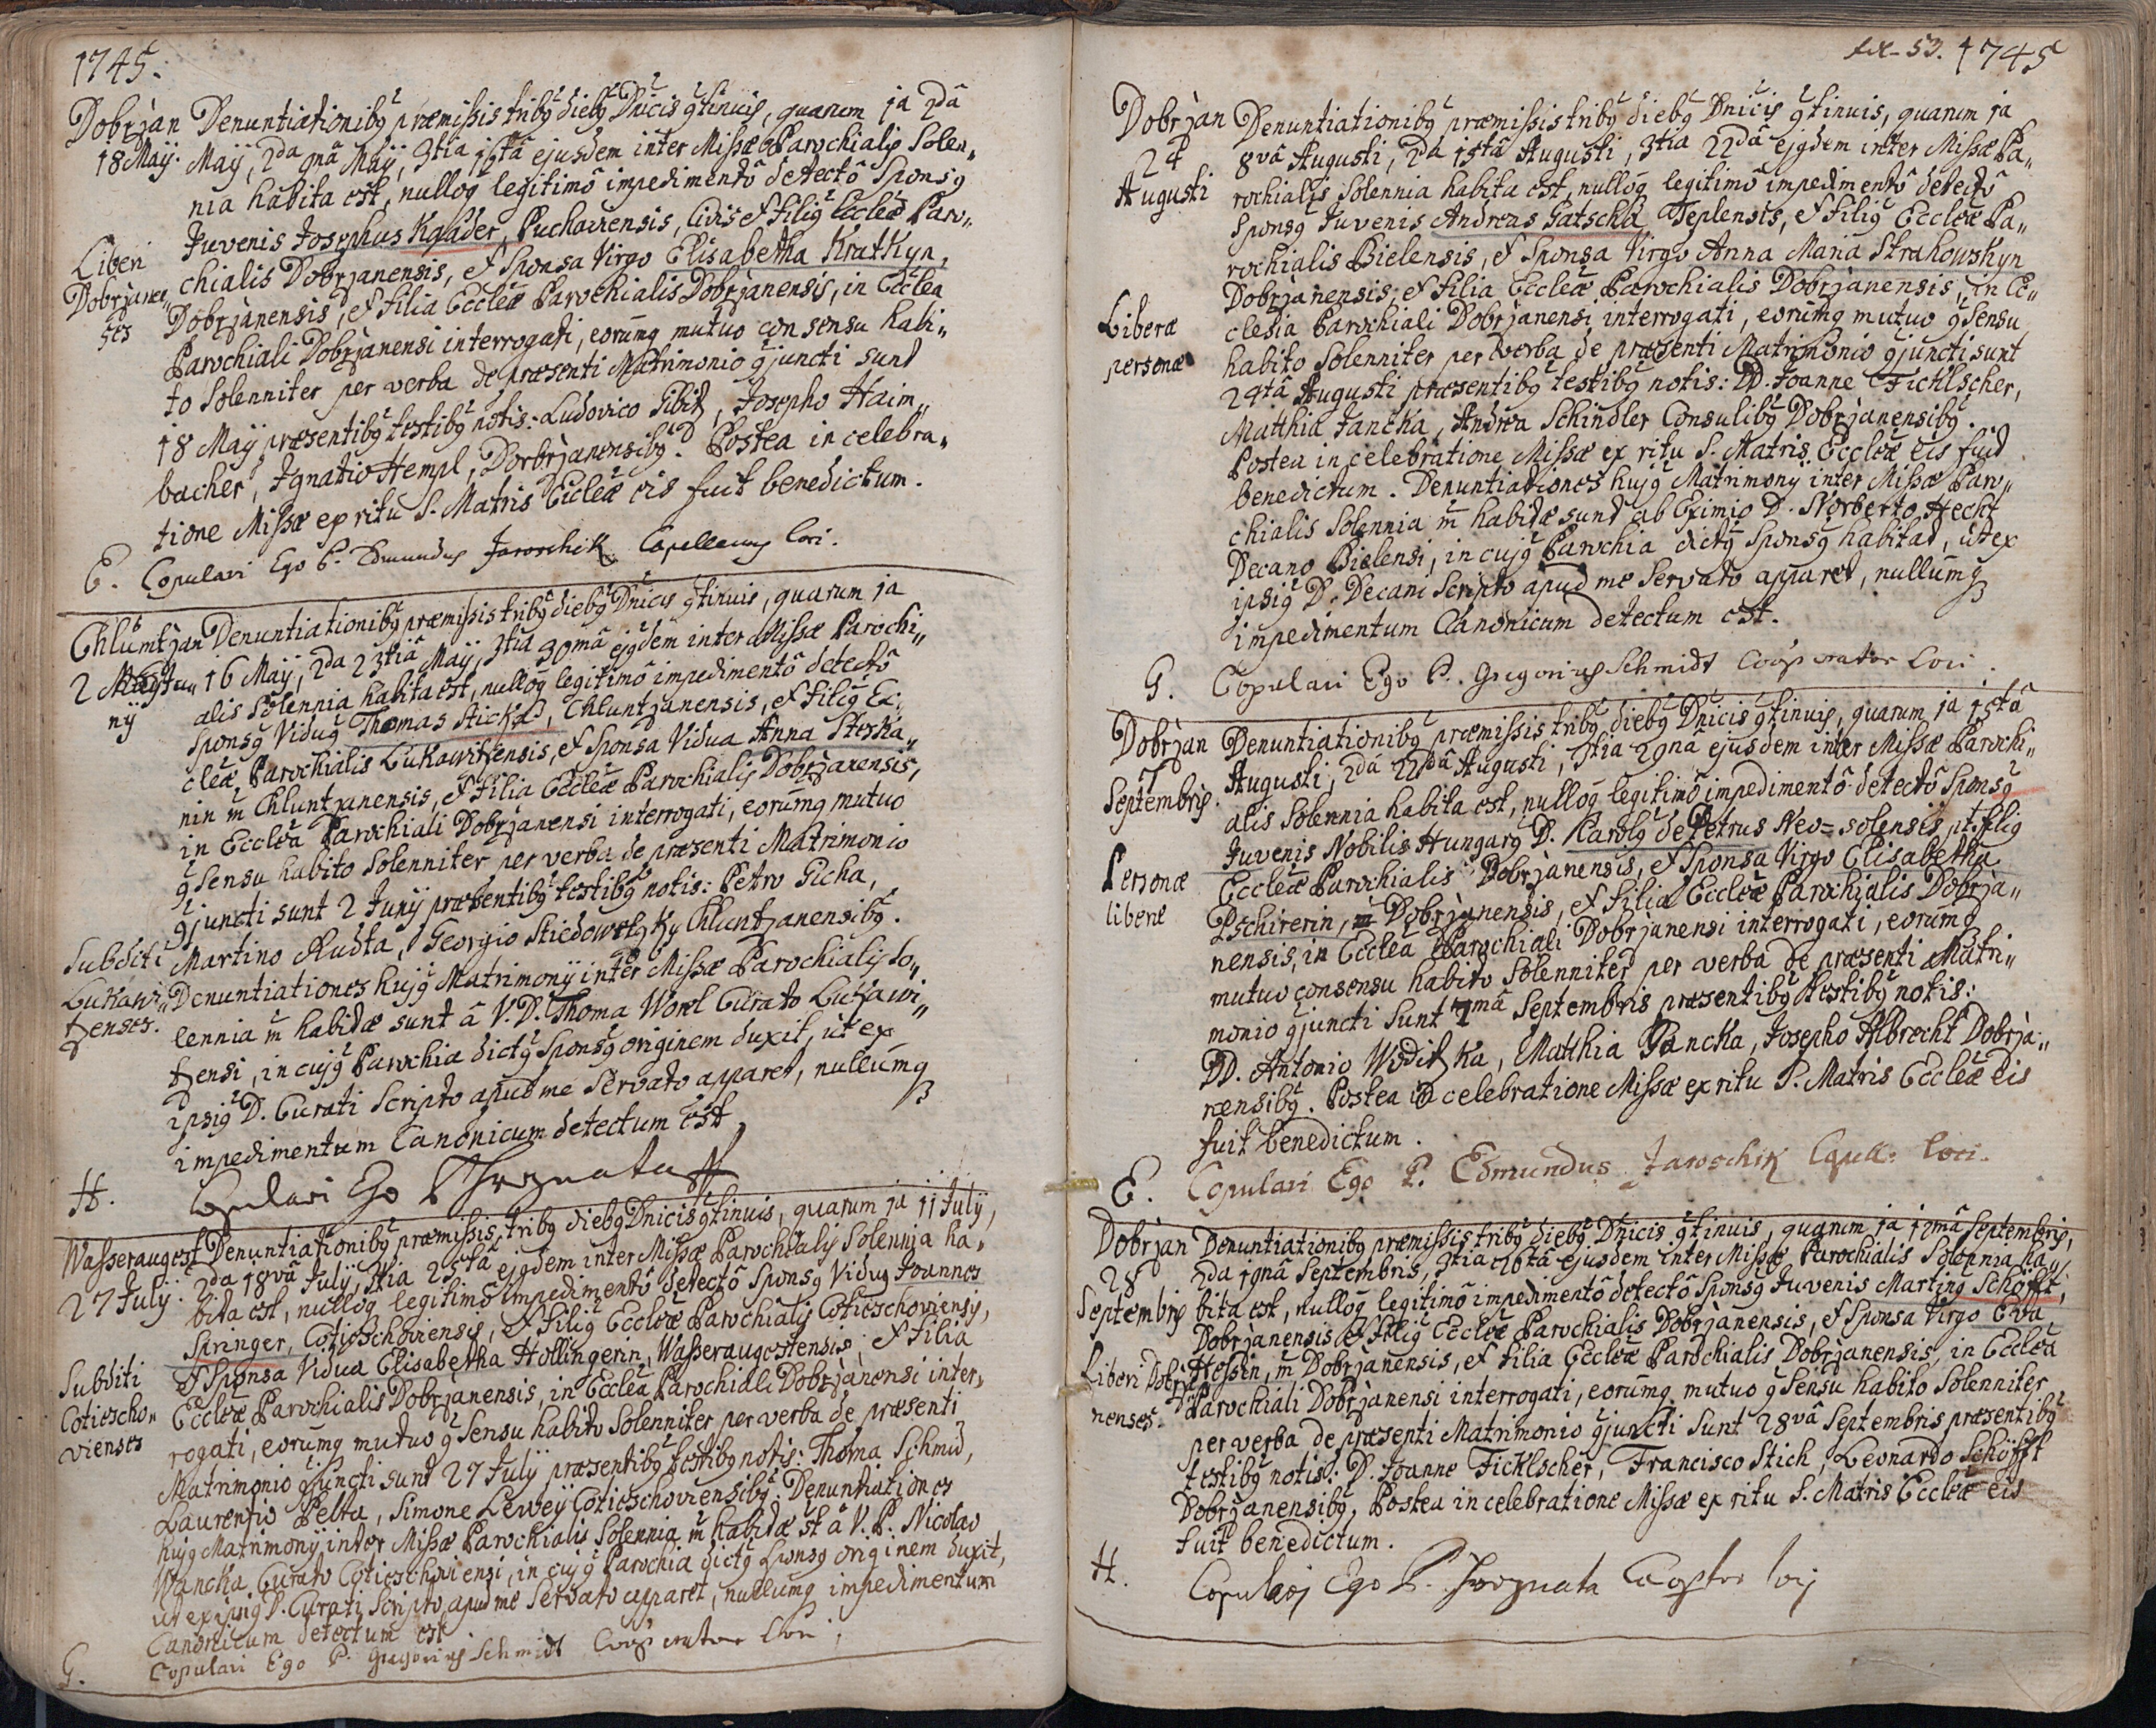 1745.
Dobrzan Denuntiationibꝯ præmissis tribꝯ diebꝯ Dnicis ꝯtinuis, quarum ja 2dâ
18 Maÿ. Maÿ, 2da 9nâ Maÿ, 3tia 16tâ ejusdem inter Missæ Parochialis Solen„
nia habita est, nulloq legitimô impedimentô detectô Sponsꝯ
Juvenis Josephus Kqader, Puchaviensis, Civis et filiꝯ Eccleæ Paro„
Liberi chialis Dobrzanensis, et Sponsa Virgo Elisabetha Kratkyn,
Dobrzanen„ Dobrzanensis, et Filia Eccleæ Parochialis Dobrzanensis, in Ecclea
ses Parochiali Dobrzanensi interrogati, eorumq mutuo consensu habi„
to Solenniter per verba de præsenti Matrimonio ꝯjuncti sunt
18 Maÿ præsentibꝯ testibꝯ notis: Ludovico Libit, Josepho Haim„
bacher, Ignatio Hempl, Dorbrzanensibꝯ. Postea in celebra„
tione Missæ ex ritu S. Matris Eccleæ eis fuit benedictum.
E. Copulavi Ego P. Edmundus Jaroschik Capellanus loci.
Chlumtzan Denuntiationibꝯ præmissis tribꝯ diebꝯ Dnicis ꝯtinuis, quarum ja
2 Junÿ 16 Maÿ, 2da 23tiâ Maÿ, 3tia 30mâ ejꝯdem inter Missæ Parochi„
alis Solennia habita est, nulloq legitimô impedimentô detectô
Sponsꝯ Viduꝯ Thomas Stickà, Chluntzanensis, et Filiꝯ Ec„
cleæ Parochialis Lukawitzensis, et Sponsa Vidua Anna Steska„
nin m̃ Chluntzanensis, et Filia Eccleæ Parochialis Dobrzanensis,
in Ecclea Parochiali Dobrzanensi interrogati, eorumq mutuo
ꝯsensu habito Solenniter per verba de præsenti Matrimonio
ꝯjuncti sunt 2 Junÿ præsentibꝯ testibꝯ notis: Petro Gicha,
Subditi Martino Rudta, Georgio Stiedowetzky Chluntzanensibꝯ.
Lukawi„ Denuntiationes hujꝯ Matrimonÿ inter Missæ Parochialis So„
tzenses. lennia m̃ habitæ sunt â V. D. Thoma Worel Curato Lukawi„
tzensi, in cujꝯ Parochia dictꝯ Sponsꝯ originem duxit, ut ex
ipsiꝯ D. Curati Scripto apud me Servato apparet, nullumq
impedimentum Canonicum detectum est.
H. Copulavi Ego P. Hroznata
Wasseraugest Denuntiationibꝯ præmissis tribꝯ diebꝯ Dnicis ꝯtinuis, quarum ja 11 Julÿ,
27 Julÿ. 2da 18vâ Julÿ, 3tia 25tâ ejꝯdem inter Missæ Parochialis Solennia ha„
bita est, nulloq legitimô impedimentô detectô Sponsꝯ Viduꝯ Joannes
Springer, Cotieschoviensis, et Filiꝯ Eccleæ Parochialis Cotieschoviensis,
Subditi et Sponsa Vidua Elisabetha Hollingerin, Wasseraugostensis, et Filia
Cotiescho„ Eccleæ Parochialis Dobrzanensis, in Ecclea Parochiali Dobrzanensi inter„
vienses rogati, eorumq mutuo ꝯsensu habito Solenniter per verba de præsenti
Matrimonio ꝯjuncti sunt 27 Julÿ præsentibꝯ testibꝯ notis: Thoma Schmid,
Laurentio Pelta, Simone Lewey Cotieschoviensibꝯ. Denuntiationes
hujꝯ Matrimonÿ inter Missæ Parochialis Solennia m̃ habitæ st â V. P. Nicolao
Wancka Curato Cotieschoviensi, in cujꝯ Parochia dictꝯ Sponsꝯ originem duxit,
ut ex ipsiꝯ D. Curati Scripto apud me Servato apparet, nullumq impedimentum
Canonicum detectum est
G. Copulavi Ego P. Gregorius Schmidt Cooperator Loci.
53. 1745
Dobrzan Denuntiationibꝯ præmissis tribꝯ diebꝯ Dnicis ꝯtinuis, quarum ja
24 8vâ Augusti, 2da 15tâ Augusti, 3tia 22dâ ejꝯdem inter Missæ Pa„
Augusti rochialis Solennia habita est, nulloq legitimô impedimentô detectô
Sponsꝯ Juvenis Andreas Gatschka Teplensis, et Filiꝯ Eccleæ Pa„
rochialis Bielensis, et Sponsa Virgo Anna Maria Strahowskyn
Dobrzanensis, et Filia Eccleæ Parochialis Dobrzanensis, in Ec„
Liberæ clesia Parochiali Dobrzanensi interrogati, eorumq mutuo ꝯsensu
personæ habito Solenniter per verba de præsenti Matrimonio ꝯjuncti sunt
24tâ Augusti præsentibꝯ testibꝯ notis: DD. Joanne Ficklscher,
Matthia Jancka, Andrea Schindler Consulibꝯ Dobrzanensibꝯ.
Postea in celebratione Missæ ex ritu S. Matris Eccleæ eis fuit
benedictum. Denuntiationes hujꝯ Matrimonÿ inter Missæ Paro„
chialis Solennia m̃ habitæ sunt ab Eximio D. Norberto Hecht
Decano Bielensi, in cujꝯ Parochia dictꝯ Sponsꝯ habitat, ut ex
ipsiꝯ D. Decani Scripto apud me Servato apparet, nullumq
impedimentum Canonicum detectum est.
G. Copulavi Ego P. Gregorius Schmidt Cooperator Loci.
Dobrzan Denuntiationibꝯ præmissis tribꝯ diebꝯ Dnicis ꝯtinuis, quarum ja 15tâ
7 Augusti, 2da 22dâ Augusti, 3tia 29nâ ejusdem inter Missæ Parochi„
Septembris. alis Solennia habita est, nulloq legitimô impedimentô detectô Sponsꝯ
Juvenis Nobilis Hungarꝯ D. Karolꝯ de Petrus Neo=solensis, et filiꝯ
Personæ Eccleæ Parochialis Dobrzanensis, et Sponsa Virgo Elisabetha
liberæ Pschirerin, m̃ Dobrzanensis, et Filia Eccleæ Parochialis Dobrza„
nensis, in Ecclea Parochiali Dobrzanensi interrogati, eorumq
mutuo consensu habito Solenniter per verba de præsenti Matri„
monio ꝯjuncti Sunt 7mâ Septembris præsentibꝯ testibꝯ notis:
DD. Antonio Woditzka, Matthia Jancka, Josepho Albrecht Dobrza„
nensibꝯ. Postea in celebratione Missæ ex ritu S. Matris Eccleæ eis
fuit benedictum.
E. Copulavi Ego P. Edmundus Jaroschik Capell: loci.
Dobrzan Denuntiationibꝯ præmissis tribꝯ diebꝯ Dnicis ꝯtinuis, quarum ja 12mâ Septembris,
28 2da 19nâ Septembris, 3tia 26tâ ejusdem inter Missæ Parochialis Solennia ha„
Septembris bita est, nulloq legitimô impedimentô detectô Sponsꝯ Juvenis Martinꝯ Schöfft,
Dobrzanensis et Filiꝯ Eccleæ Parochialis Dobrzanensis, et Sponsa Virgo Eva
Liberi Dobrza„ Hessin, m̃ Dobrzanensis, et Filia Eccleæ Parochialis Dobrzanensis, in Ecclea
nenses. Parochiali Dobrzanensi interrogati, eorumq mutuo ꝯsensu habito Solenniter
per verba de præsenti Matrimonio ꝯjuncti Sunt 28vâ Septembris præsentibꝯ
testibꝯ notis: D. Joanne Ficklscher, Francisco Stich, Leonardo Schöfft
Dobrzanensibꝯ, Postea in celebratione Missæ ex ritu S. Matris Eccleæ eis
fuit benedictum.
H. Copulavi Ego P. Hroznata Cooptor locj